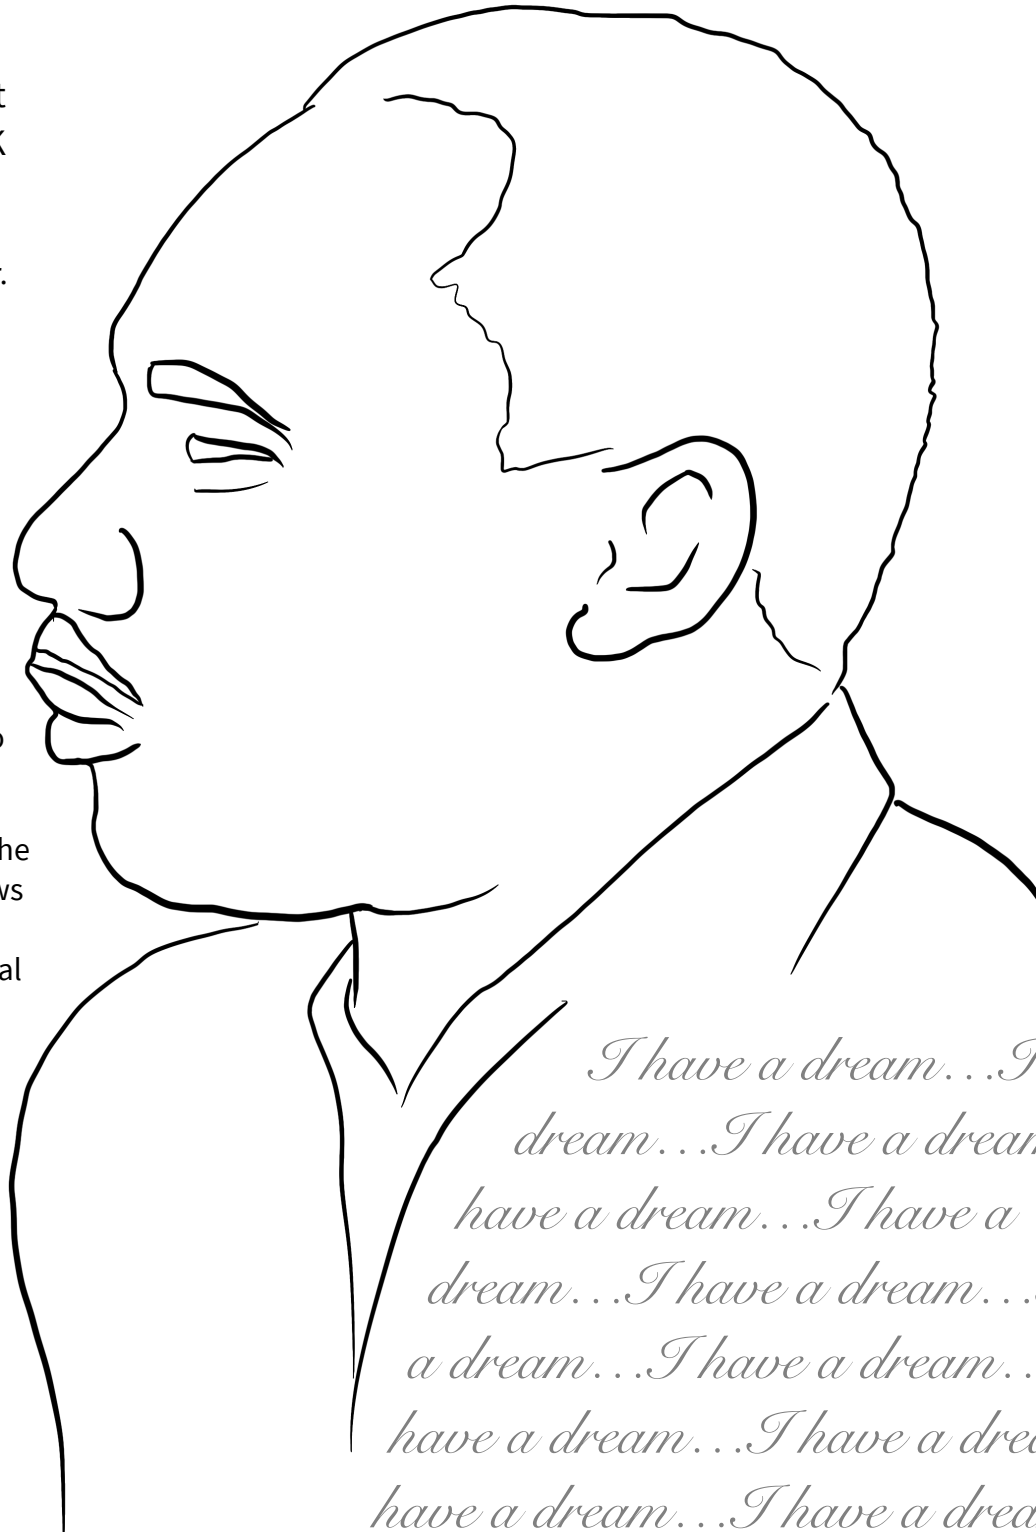 he
al
I have a dream…I
dream…I have a dream
have a dream…I have a
dream…I have a dream…
a dream…I have a dream…
have a dream…I have a drea
have a dream…I have a drea